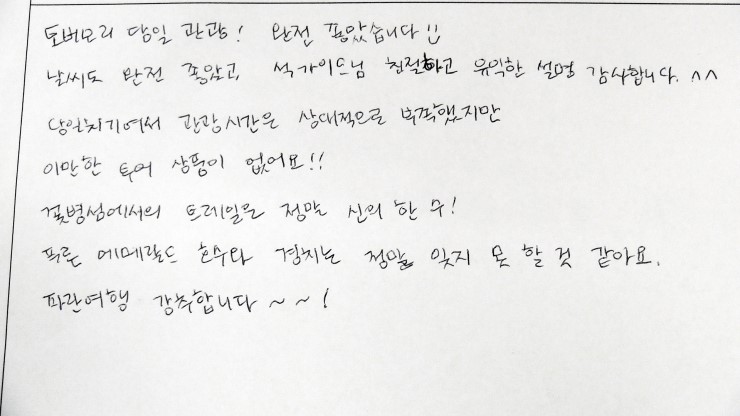 토버모리 당일 관광! 완전 좋았습니다 :)
날씨도 완전 좋았고, 석가이드님 친절하고 유익한 설명 감사합니다. ^^
당일치기여서 관광시간은 상대적으로 부족했지만
이만한 투어 상품이 없어요!!
꽃병섬에서의 트레일은 정말 신의 한 수!
푸른 에메랄드 호수와 경치는 정말 잊지 못 할 것 같아요.
파란여행 강추합니다 ~ ~ !